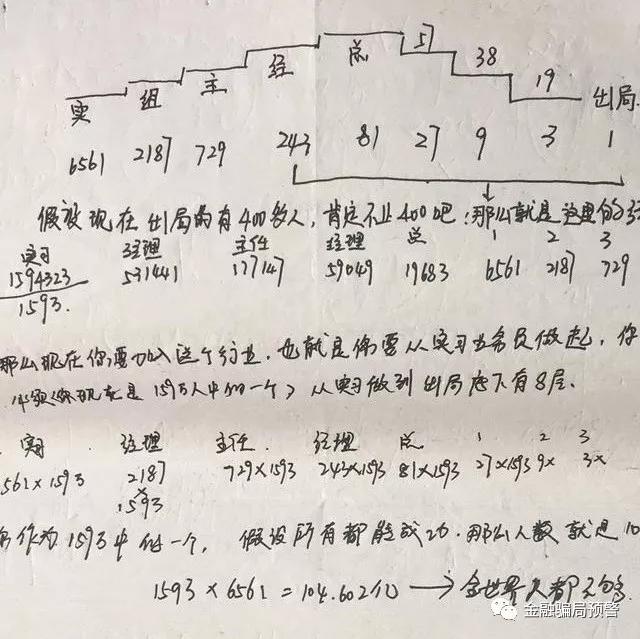 57
38
19
实 组 主 经 总 出局
6561 2187 729 243 81 27 9 3 1
假设现在出局的有400多人,肯定不止400吧:那么就是这里的
实习 经理 主任 经理 总 1 2 3
1594323 531441 177147 59049 19683 6561 2187 729
1593.
那么现在你要加入这个行业,也就是你要从实习业务员做起,你
(你现在是1593万人中的一个)从实习做到出局底下有8层.
实习 经理 主任 经理 总 1 2 3
561×1593 2187×1593 729×1593 243×1593 81×1593 27×1593 9× 3×
作为1593中任一个,假设所有都能成功.那么人数就是10
1593×6561=104.602亿→全世界人都不够.
金融骗局预警